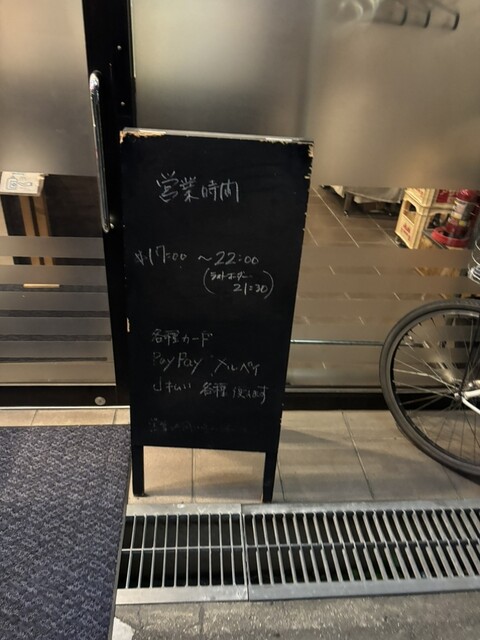 営業時間
17:00 ～22:00
(ラストオーダー
21:30)
各種カード
PayPay メルペイ
d払い 各種使えます